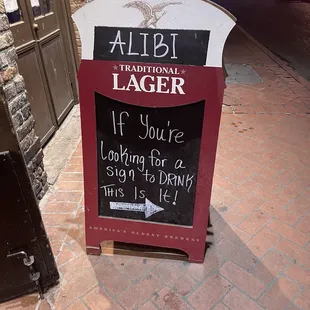 ALIBI
TRADITIONAL
LAGER
If You're
Looking for a
sign to DRINK
THIS Is It!
AMERICA'S OLDEST BREWERY